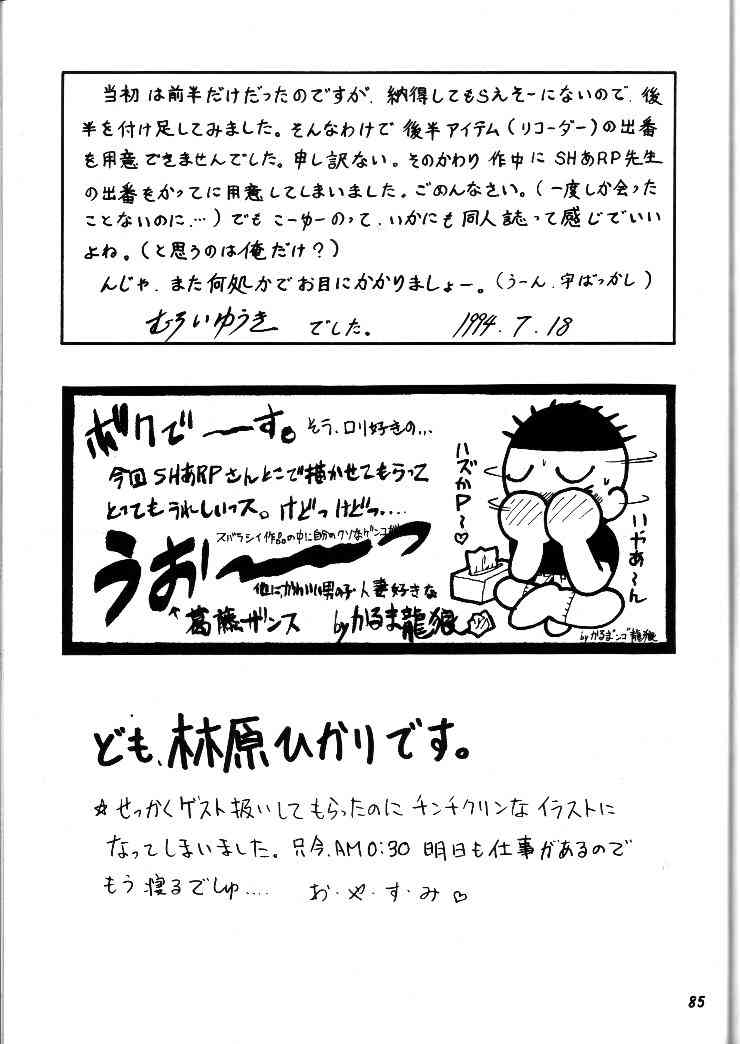 当初は前半だけだったのですが、納得してもらえそーにないので、後
半を付け足してみました。そんなわけで後半アイテム(リコーダー)の出番
を用意できませんでした。申し訳ない。そのかわり作中にSHあRP先生
の出番をかってに用意してしまいました。ごめんなさい。(一度しか会った
ことないのに…)でもこーゆーのって、いかにも同人誌って感じでいい
よね。(と思うのは俺だけ?)
んじゃ、また何処かでお目にかかりましょー。(うーん、字ばっかし)
むろいゆうき でした。 1994.7.18
ボクで〜〜す。そう、ロリ好きの…
今回SHあRPさんとこで描かせてもらって
とってもうれしいっス。けどっけどっ….
スバラシイ作品の中に自分のクソなゲンコ
うお〜〜〜っ
他にかわいい男の子、人妻好きな
↖葛藤ザンス byかるま龍狼
ハズかP〜♡
いやあ〜ん
byかるまンコ龍狼
ども、林原ひかりです。
☆せっかくゲスト扱いしてもらったのにチンチクリンなイラストに
なってしまいました。只今、AM0:30 明日も仕事があるので
もう寝るでしゅ…. お・や・す・み♡
85